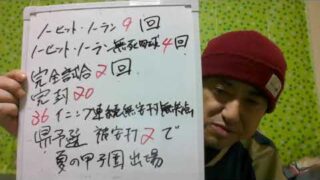 ノーヒット・ノーラン 9回
ノーヒット・ノーラン無死四球4回
完全試合2回
完封20
36イニング連続無安打無失点
県予選 被安打2で
夏の甲子園出場